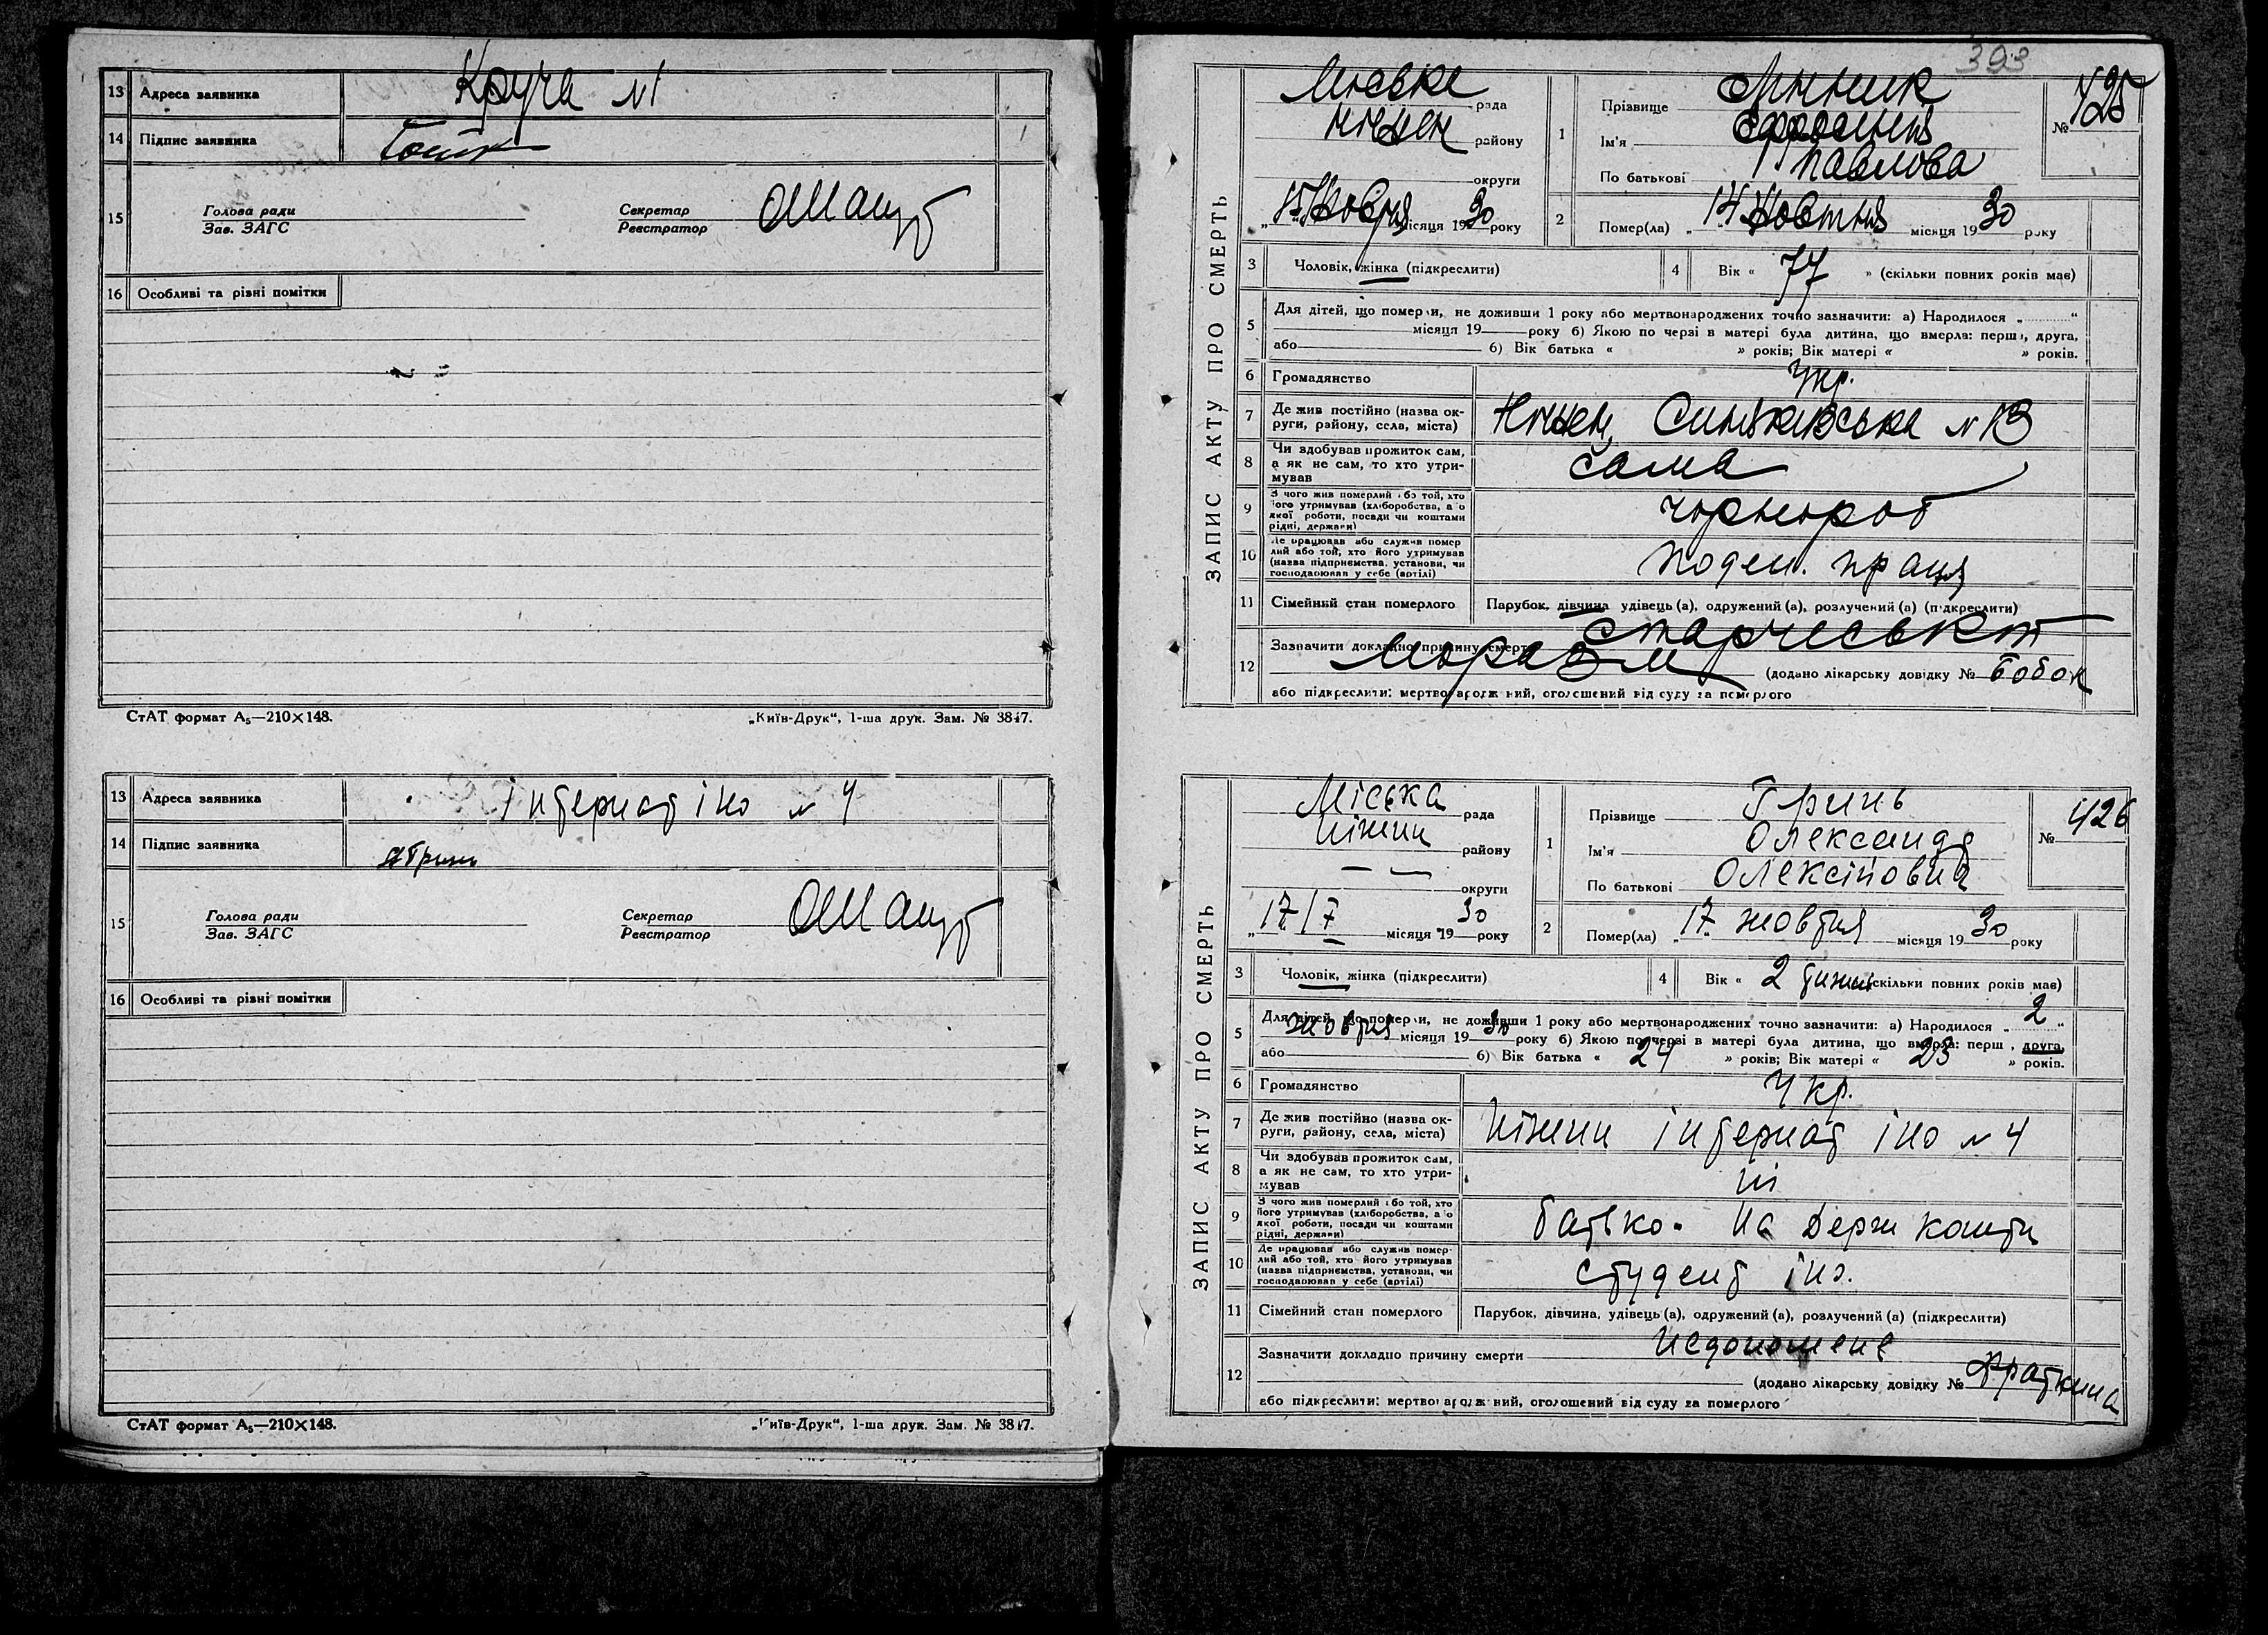 13 Адреса заявника Круча №1
14 Підпис заявника
15 Голова ради
Зав. ЗАГС
Секретар
Реєстратор
16 Особливі та різні помітки
СтАТ формат А₅—210×148. „Київ-Друк“, 1-ша друк. Зам. № 3847.
13 Адреса заявника інтернат іно № 4
14 Підпис заявника АГринь
15 Голова ради
Зав. ЗАГС
Секретар
Реєстратор
16 Особливі та різні помітки
СтАТ формат А₅—210×148. „Київ-Друк“, 1-ша друк. Зам. № 3847.
393
ЗАПИС АКТУ ПРО СМЕРТЬ
Міська рада
Ніжен району
округи
місяця 1930 року
1 Прізвище
Ім'я Єфросинія
По батькові Павлова
№ 425
2 Помер(ла) „ 14 жовтня місяця 1930 року
3 Чоловік, жінка (підкреслити)
4 Вік « 77 » (скільки повних років має)
5 Для дітей, що померли, не доживши 1 року або мертвонароджених точно зазначити: а) Народилося „ “
місяця 19 року б) Якою по черзі в матері була дитина, що вмерла: перша, друга,
або б) Вік батька « » років; Вік матері « » років.
6 Громадянство Укр.
7 Де жив постійно (назва округи, району, села, міста) Ніжен, Синяківська № 13
8 Чи здобував прожиток сам, а як не сам, то хто утримував сама
9 З чого жив померлий або той, хто його утримував (хліборобства, або якої роботи, посади чи коштами рідні, держави) чорнороб
10 Де працював або служив померлий або той, хто його утримував (назва підприємства, установи, чи господарював у себе (артілі) поден. праця
11 Сімейний стан померлого Парубок, дівчина удівець (а), одружений (а), розлучений (а) (підкреслити)
12 Зазначити докладно причину смерти Старческий
маразм (додано лікарську довідку № Бобок
або підкреслити: мертвонароджений, оголошений від суду за померлого
ЗАПИС АКТУ ПРО СМЕРТЬ
Міська рада
Ніжин району
— — округи
„ 17/X місяця 1930 року
1 Прізвище Гринь
Ім'я Олександр
По батькові Олексійович
№ 426
2 Помер(ла) „ 17 жовтня місяця 1930 року
3 Чоловік, жінка (підкреслити)
4 Вік « 2 тижні (скільки повних років має)
5 Для дітей, що померли, не доживши 1 року або мертвонароджених точно зазначити: а) Народилося „ 2 “
жовтня місяця 1930 року б) Якою по черзі в матері була дитина, що вмерла: перша, друга,
або б) Вік батька « 24 » років; Вік матері « 23 » років.
6 Громадянство Укр.
7 Де жив постійно (назва округи, району, села, міста) Ніжин інтернат іно № 4
8 Чи здобував прожиток сам, а як не сам, то хто утримував ні
9 З чого жив померлий або той, хто його утримував (хліборобства, або якої роботи, посади чи коштами рідні, держави) батько. На держ кошти
10 Де працював або служив померлий або той, хто його утримував (назва підприємства, установи, чи господарював у себе (артілі) студент іно.
11 Сімейний стан померлого Парубок, дівчина, удівець (а), одружений (а), розлучений (а) (підкреслити)
12 Зазначити докладно причину смерти Недоношене
(додано лікарську довідку № Фраткина
або підкреслити: мертвонароджений, оголошений від суду за померлого